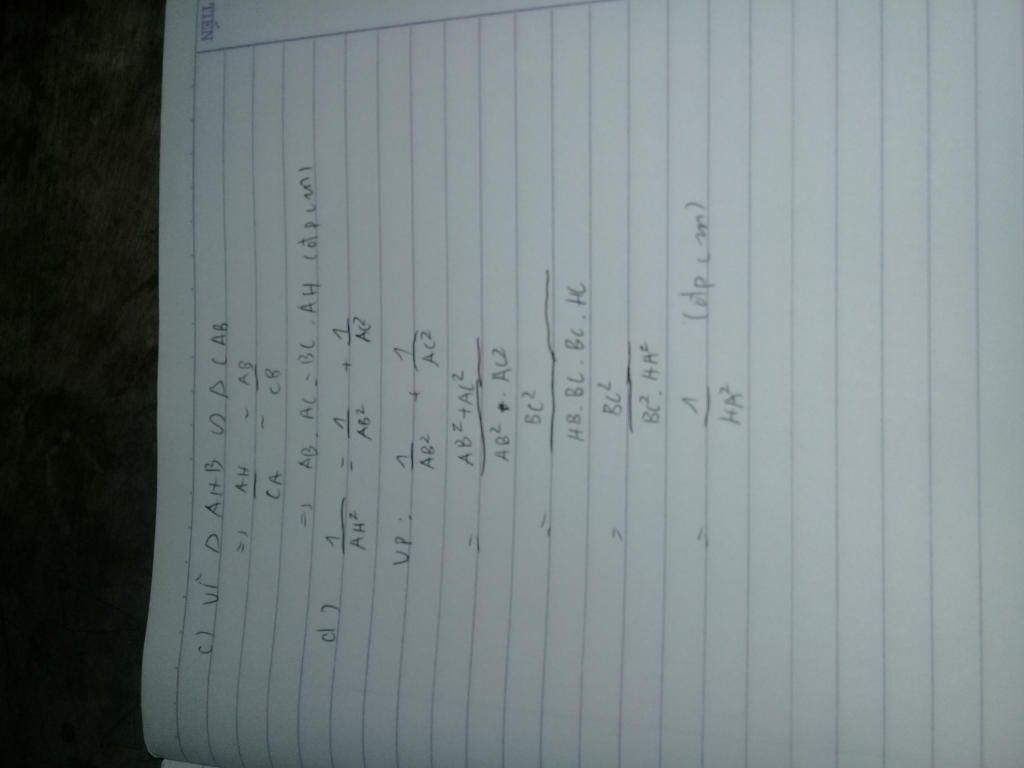 TIỆN
c) Vì Δ AHB ∽ Δ CAB
=> AH/CA = AB/CB
=> AB. AC = BC. AH (đpcm)
d) 1/AH² = 1/AB² + 1/AC²
VP: 1/AB² + 1/AC²
= AB²+AC²/AB² . AC²
= BC²/HB. BC. BC. HC
= BC²/BC². HA²
= 1/HA² (đpcm)